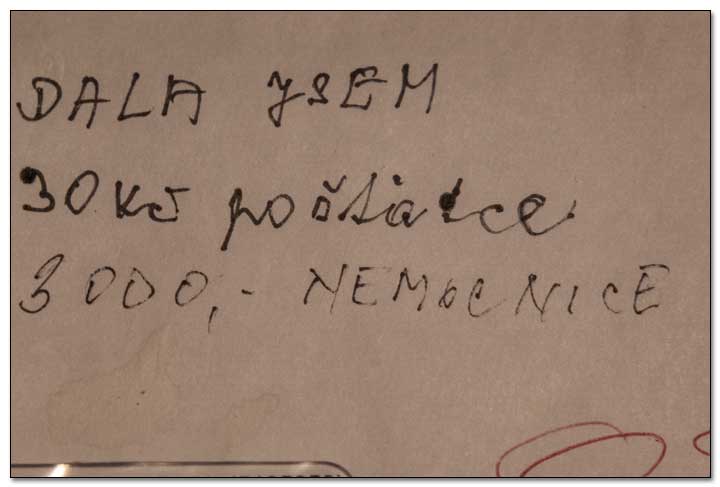 DALA JSEM
30Kč pošťačce
3000,- NEMOCNICE